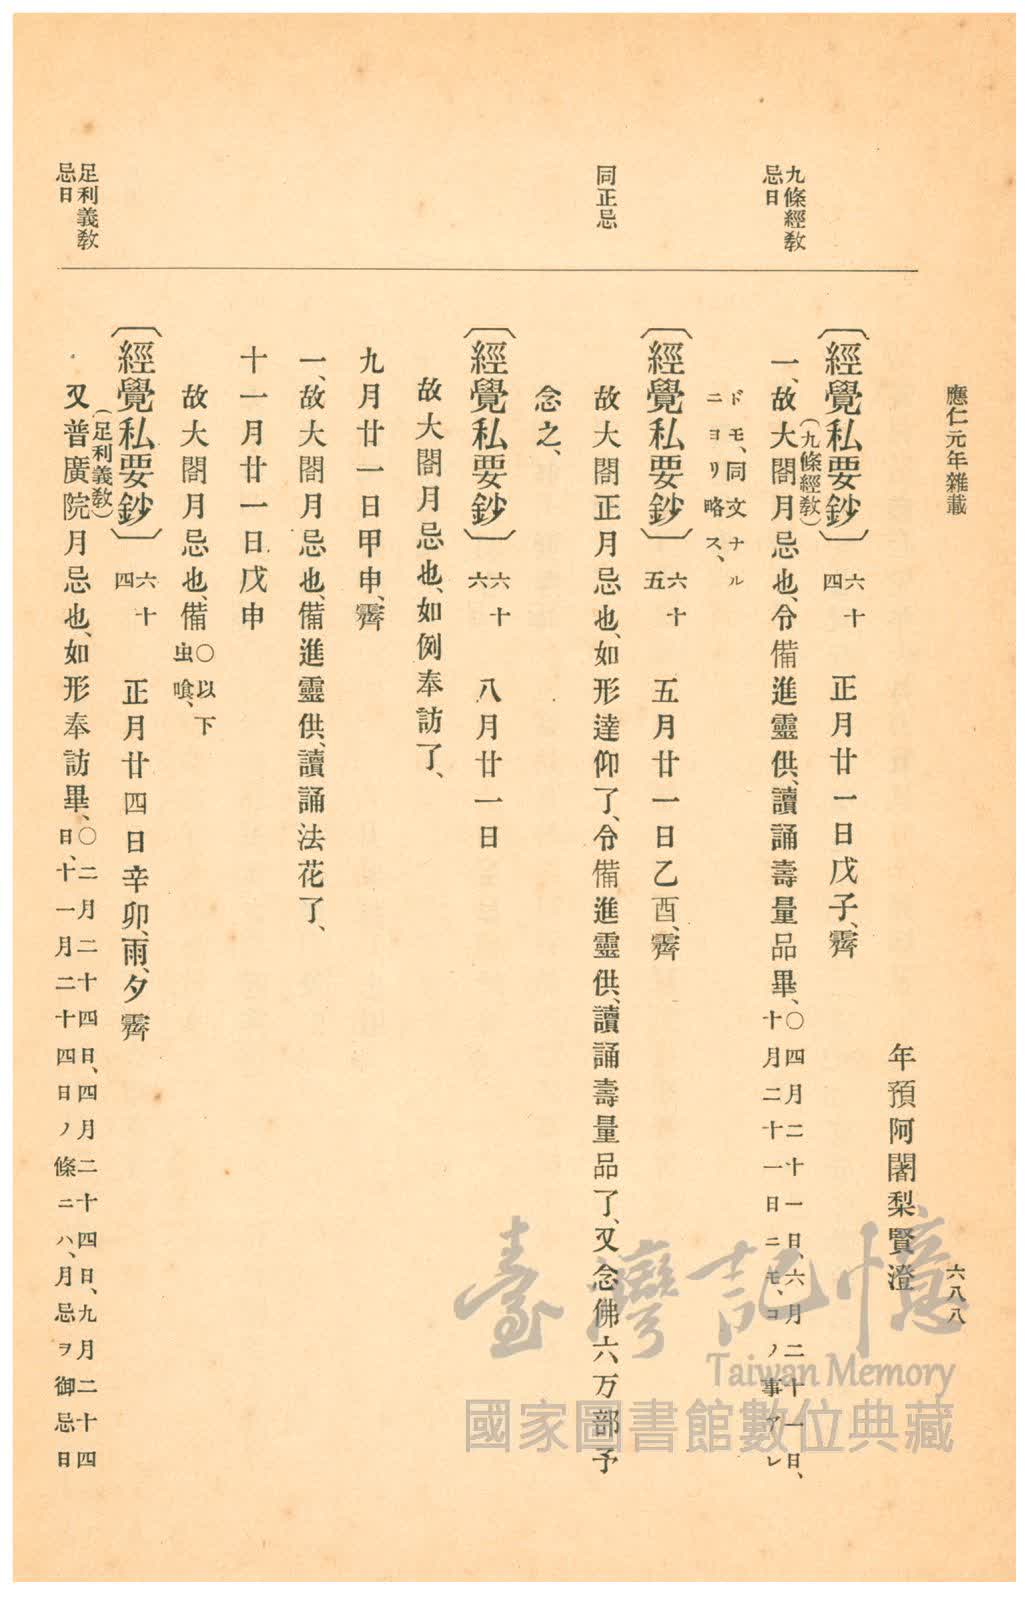 應仁元年雜載
六八八
九條經敎
忌日
同正忌
足利義敎
忌日
年預阿闍梨賢澄
〔經覺私要鈔〕六十四 正月廿一日戊子、霽
(九條經敎)
一、故大閤月忌也、令備進靈供、讀誦壽量品畢、〇四月二十一日、六月二十一日、
十月二十一日ニモ、コノ事アレ
ドモ、同文ナル
ニヨリ略ス、
〔經覺私要鈔〕六十五 五月廿一日乙酉、霽
故大閤正月忌也、如形達仰了、令備進靈供、讀誦壽量品了、又念佛六万部予
念之、
〔經覺私要鈔〕六十六 八月廿一日
故大閤月忌也、如例奉訪了、
九月廿一日甲申、霽
一、故大閤月忌也、備進靈供、讀誦法花了、
十一月廿一日戊申
故大閤月忌也、備〇以下
虫喰、
〔經覺私要鈔〕六十四 正月廿四日辛卯、雨、夕霽
(足利義敎)
又普廣院月忌也、如形奉訪畢、〇二月二十四日、四月二十四日、九月二十四
日、十一月二十四日ノ條ニハ、月忌ヲ御忌日
臺灣記憶
Taiwan Memory
國家圖書館數位典藏